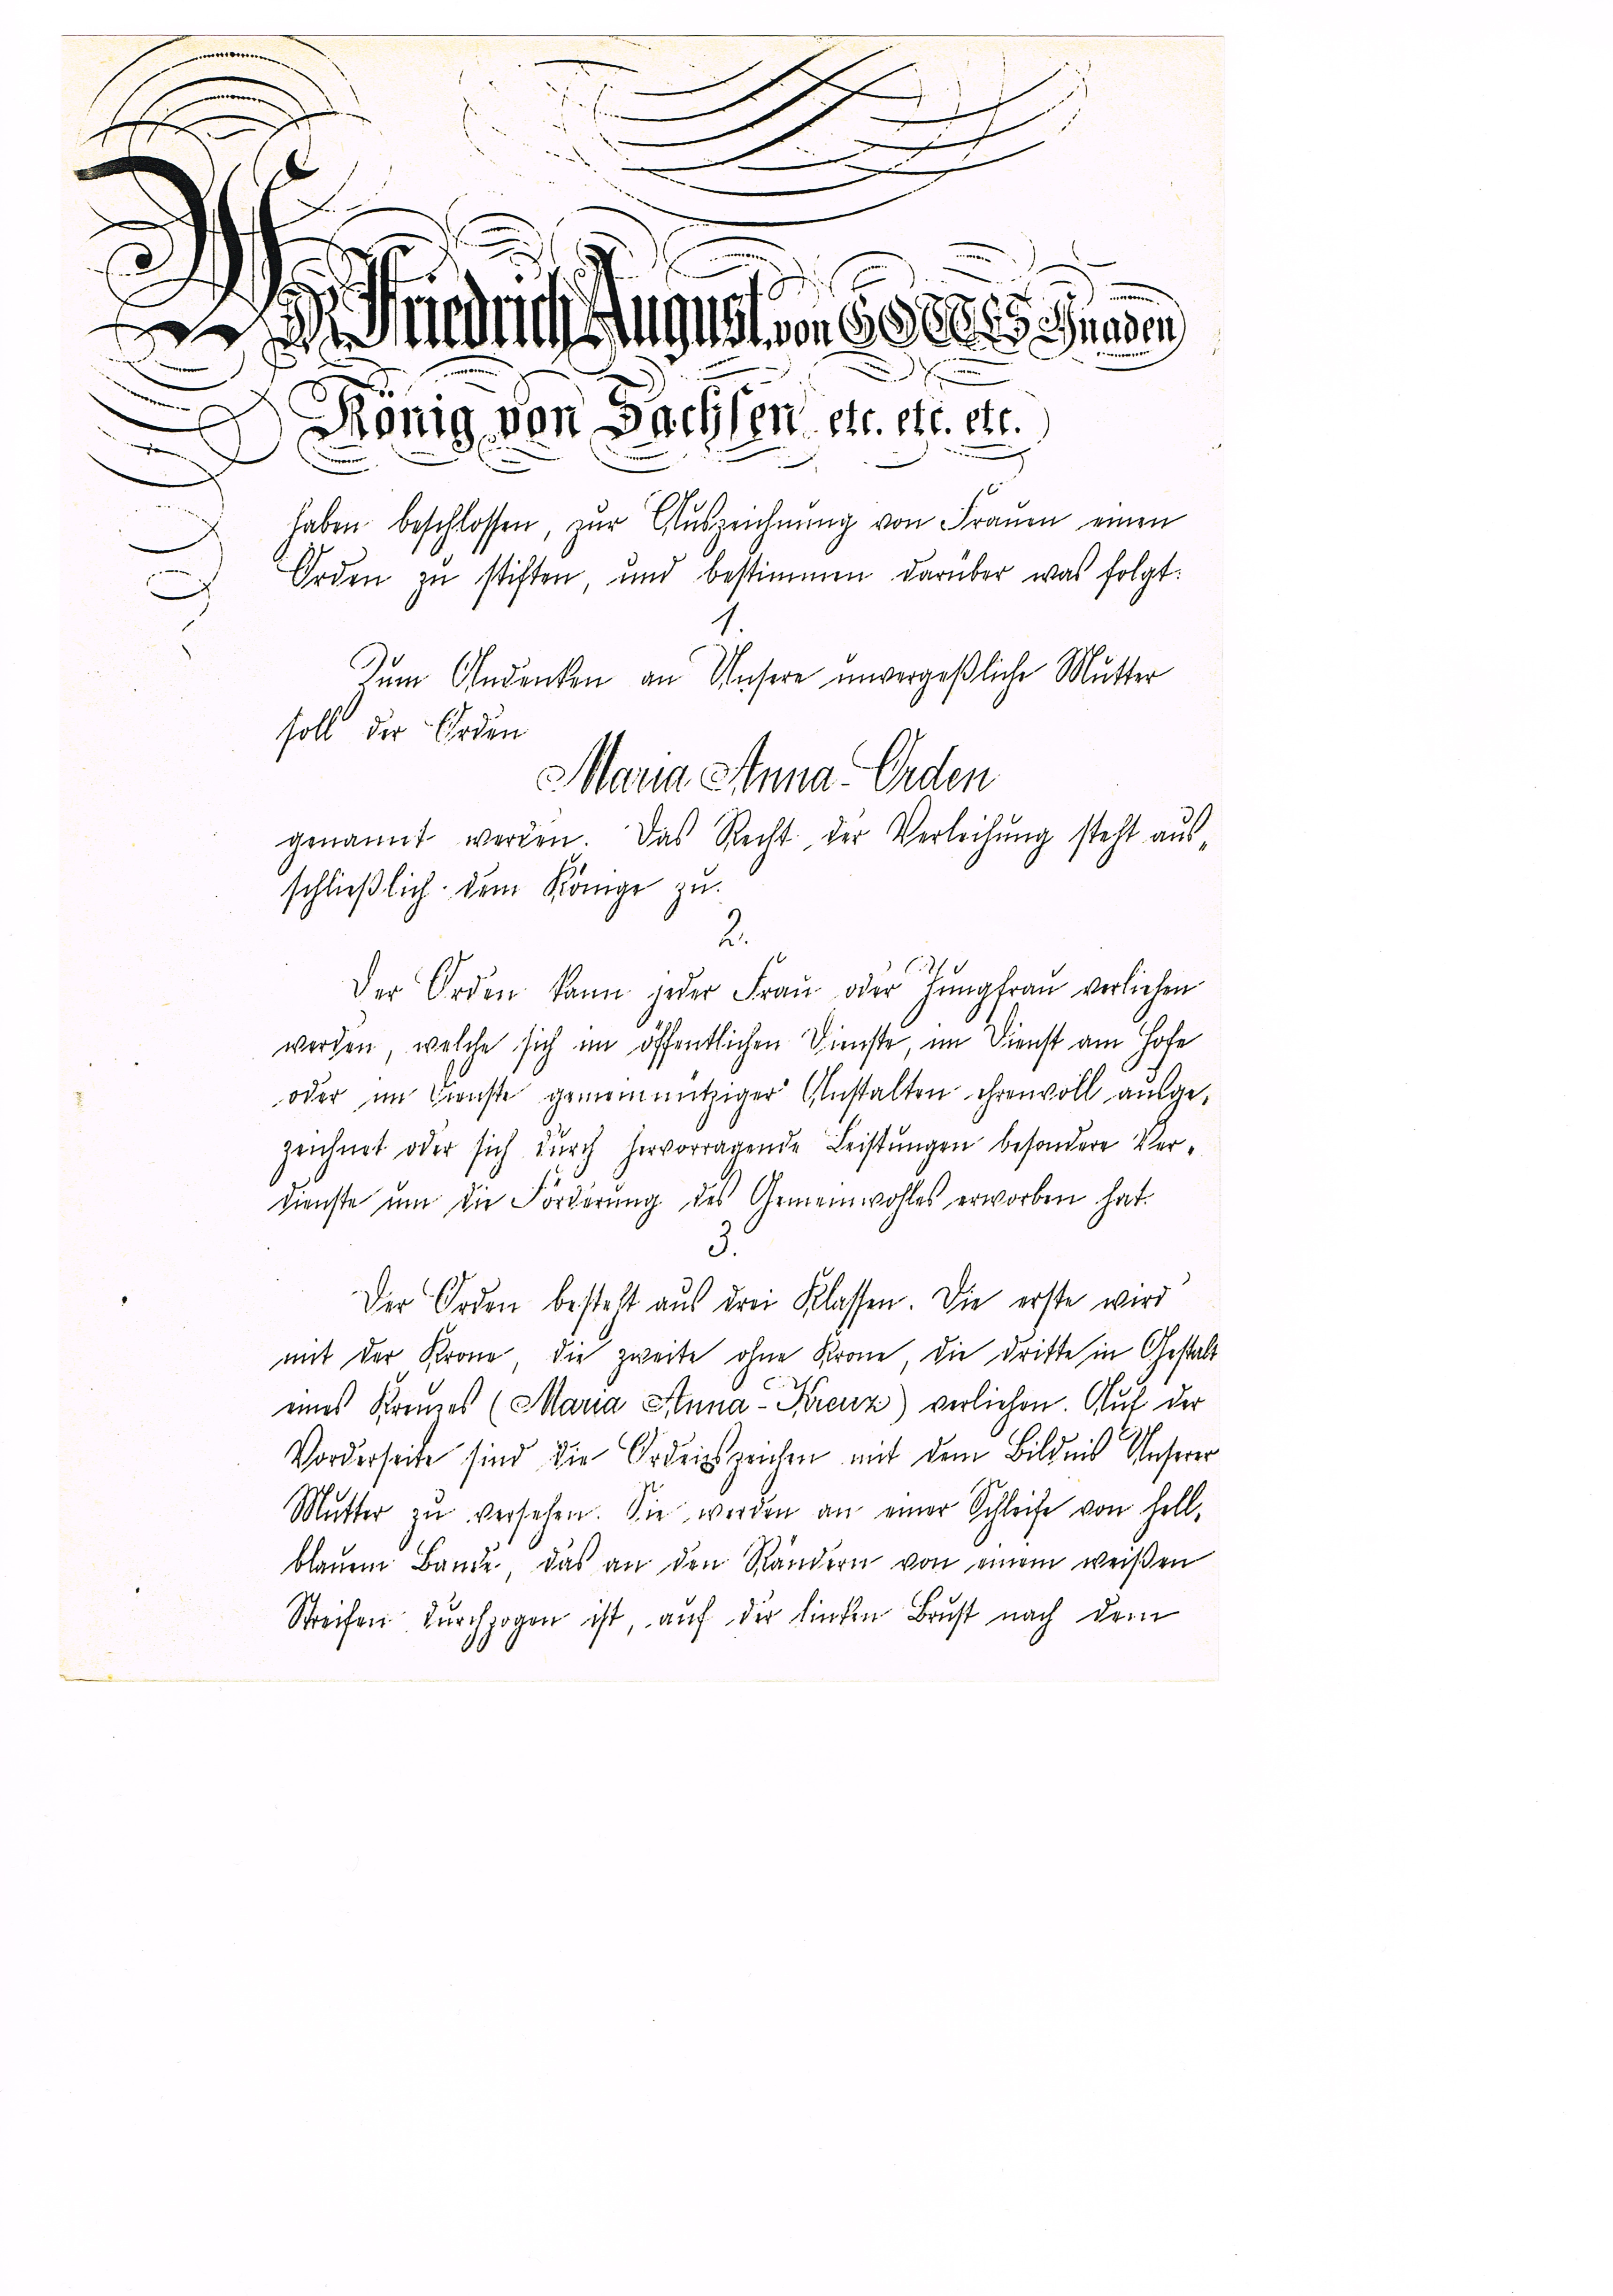 WIR Friedrich August, von GOTTES Gnaden
König von Sachsen etc. etc. etc.
haben beschlossen, zur Auszeichnung von Frauen einen
Orden zu stiften, und bestimmen darüber was folgt:
1.
Zum Andenken an Unsere unvergeßliche Mutter
soll der Orden
Maria Anna-Orden
genannt werden. Das Recht der Verleihung steht aus„
schließlich dem Könige zu.
2.
Der Orden kann jeder Frau oder Jungfrau verliehen
werden, welche sich im öffentlichen Dienste, im Dienst am Hofe
oder im Dienste gemeinnütziger Anstalten ehrenvoll ausge„
zeichnet oder sich durch hervorragende Leistungen besondere Ver„
dienste um die Förderung des Gemeinwohles erworben hat.
3.
Der Orden besteht aus drei Klassen. Die erste wird
mit der Krone, die zweite ohne Krone, die dritte in Gestalt
eines Kreuzes (Maria Anna-Kreuz) verliehen. Auf der
Vorderseite sind die Ordenszeichen mit dem Bildnis Unserer
Mutter zu versehen. Sie werden an einer Schleife von hell„
blauem Bande, das an den Rändern von einem weißen
Streifen durchzogen ist, auf der linken Brust nach dem